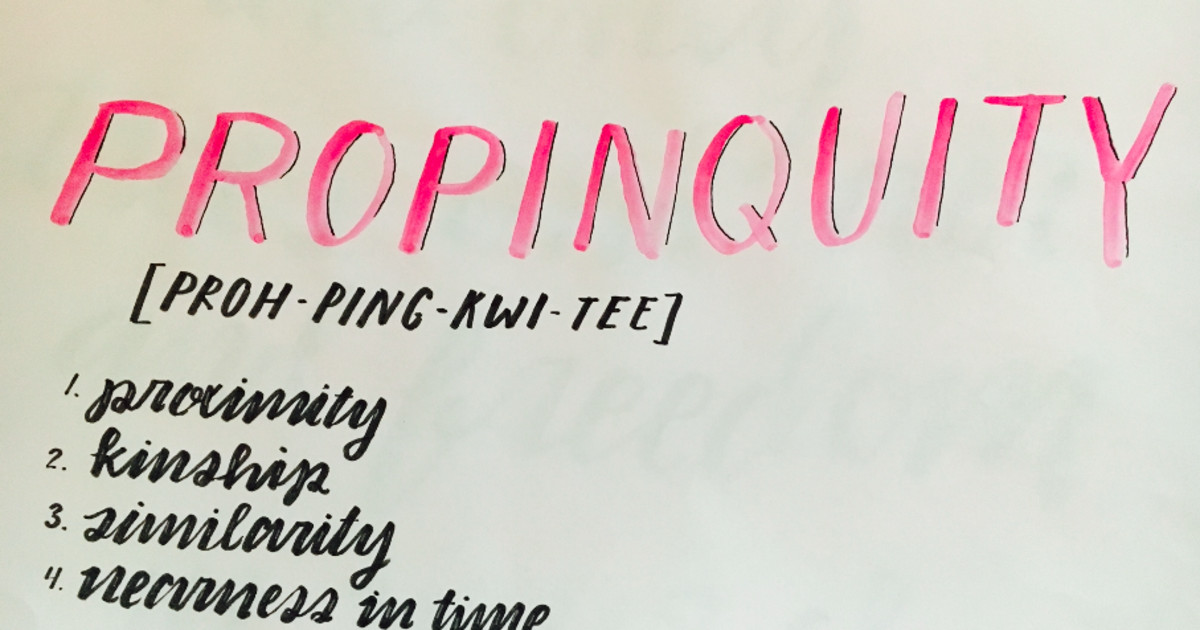 PROPINQUITY
[PROH-PING-KWI-TEE]
1. proximity
2. kinship
3. similarity
4. nearness in time